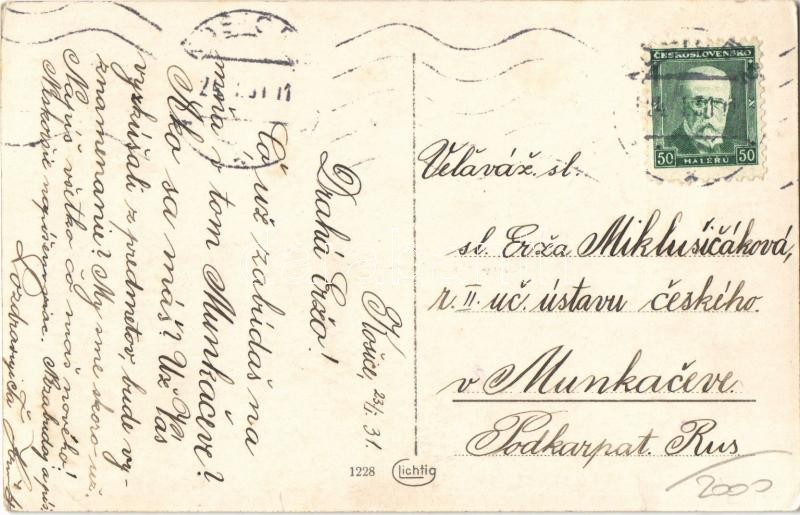 Košice, 23/I. 31.
Drahá Eržo!
Čo už zabúdaš na
mňa v tom Munkačeve?
Ako sa máš? Už Vás
vyzkúšali z predmetov, bude vy-
znamenanie? My sme skoro už.
Napíš všetko čo máš nového!
Pozdravuje Ťa
Veleváž. sl.
sl. Erža Miklušičáková,
r. II. uč. ústavu českého.
v Munkačeve.
Podkarpat. Rus
ČESKOSLOVENSKO
50 HALÉŘŮ 50
1228 Lichtig
2000